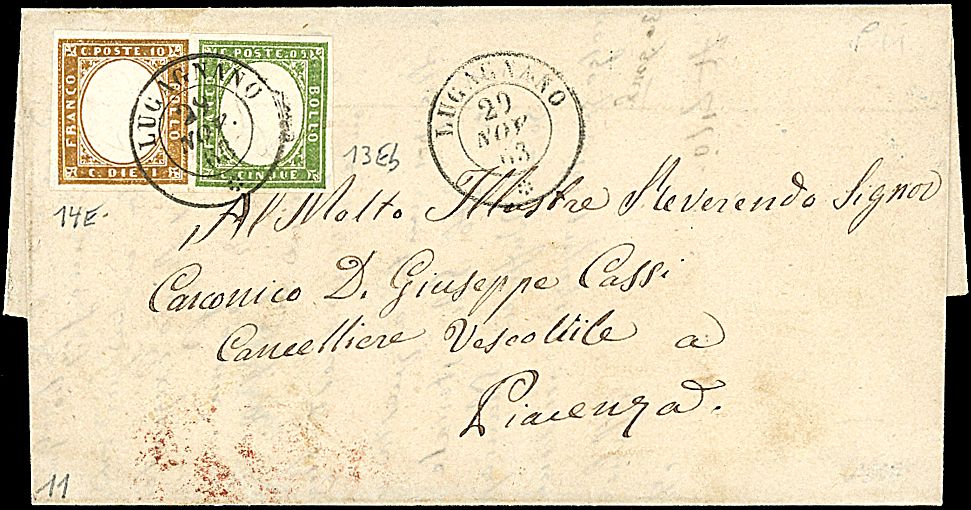 C. POSTE. 10
FRANCO
BOLLO
C. DIECI
C. POSTE. 05
BOLLO
CINQUE
LUGAGNANO
NOV.
63
LUGAGNANO
29
NOV
63
13Eb
14E.
Al Molto Illustre Reverendo Signor
Canonico D. Giuseppe Cassi
Cancelliere Vescovile a
Piacenza.
11